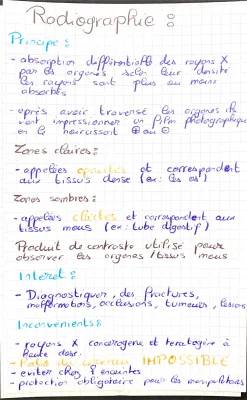 Radiographie :
Principe :
- absorption différentielle des rayons X
par les organes selon leur densité
les rayons sont plus ou moins
absorbés
- après avoir traversé les organes ils
vont impressionner un film photographique
en le noircissant ⊕ ou ⊖
Zones claires :
- appelées opacités et correspondent
aux tissus dense (ex : les os)
Zones sombres :
- appelées clartés et correspondent aux
tissus mous (ex : tube digestif)
Produit de contraste utilisé pour
observer les organes / tissus mous
Interet :
- Diagnostiquer, des fractures,
malformations, occlusions, tumeurs, lésions
Inconvénients :
- rayons X cancerogene et teratogène à
haute dose.
- IMPOSSIBLE
- eviter chez ♀ enceintes
- protection obligatoire pour les manipulateurs